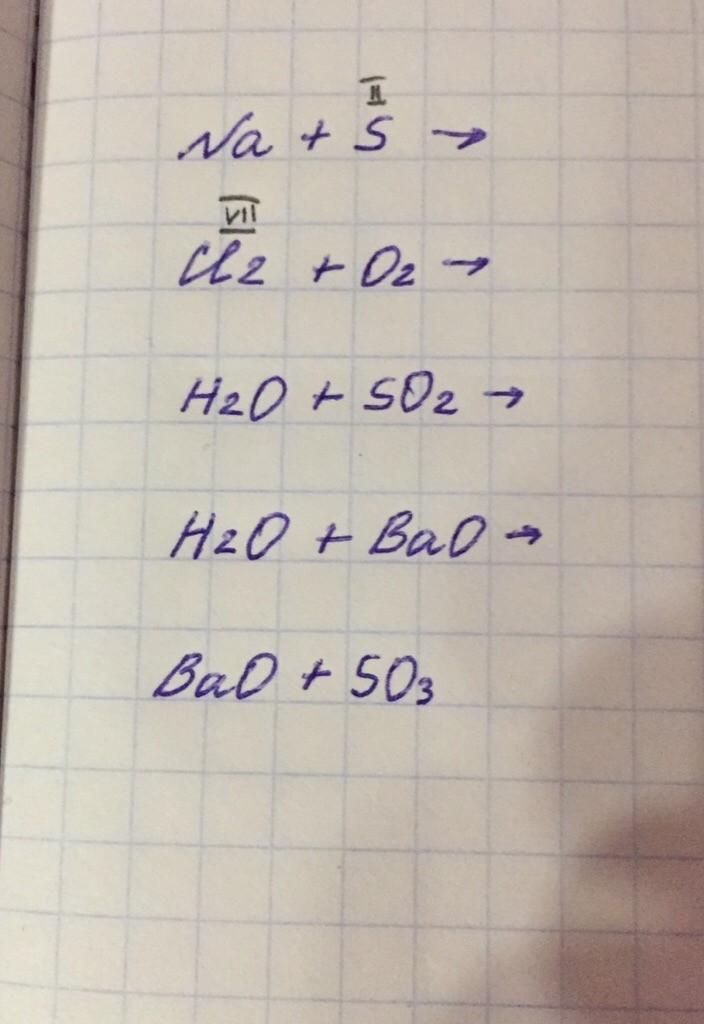 II
Na + S →
VII
Cl2 + O2 →
H2O + SO2 →
H2O + BaO →
BaO + SO3